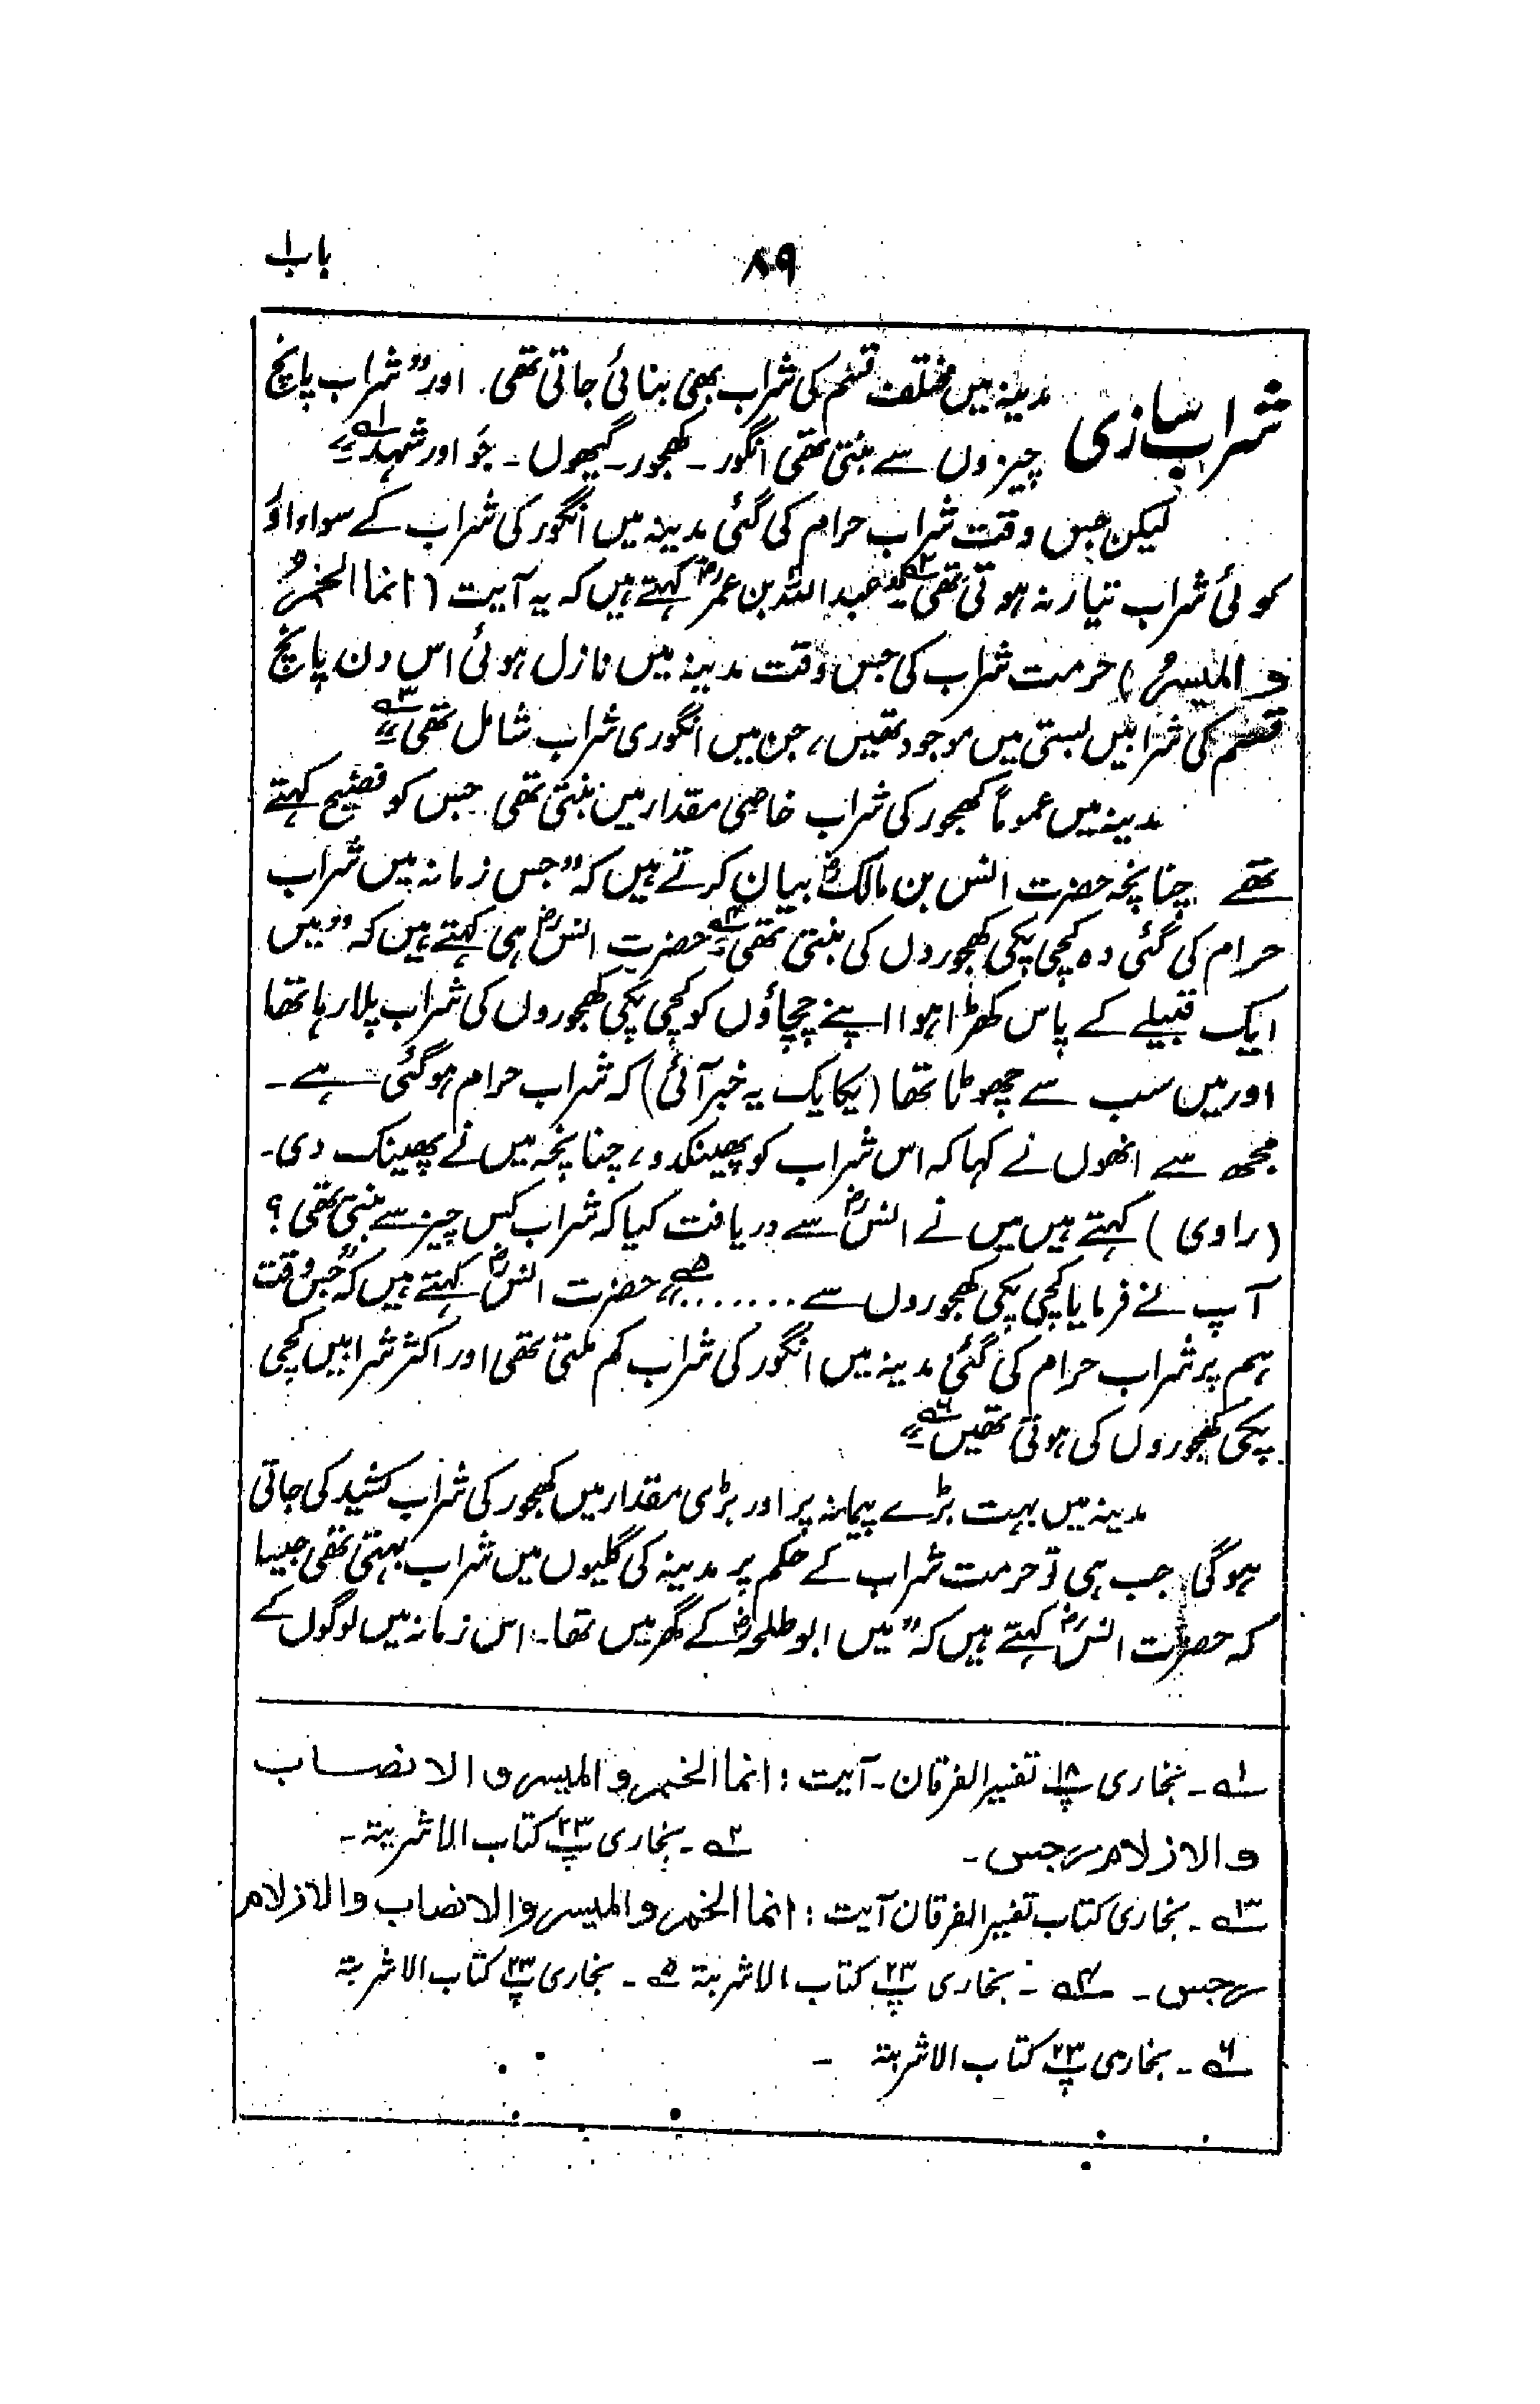 ۸۹
باب ۱
شراب سازی
مدینہ میں مختلف قسم کی شراب بھی بنائی جاتی تھی۔ اور ”شراب پانچ
چیزوں سے بنتی تھی انگور۔ کھجور۔ گیہوں۔ جَو اور شہد“ ۱؎
لیکن جس وقت شراب حرام کی گئی مدینہ میں انگور کی شراب کے سوا اور
کوئی شراب تیار نہ ہوتی تھی ۲؎ عبداللہ بن عمرؓ کہتے ہیں کہ یہ آیت (انما الخمرُ
و المیسرُ) حرمت شراب کی جس وقت مدینہ میں نازل ہوئی اس دن پانچ
قسم کی شرابیں بستی میں موجود تھیں، جن میں انگوری شراب شامل تھی“ ۳؎
مدینہ میں عموماً کھجور کی شراب خاصی مقدار میں بنتی تھی جس کو فضیح کہتے
تھے چنانچہ حضرت انس بن مالکؓ بیان کرتے ہیں کہ ”جس زمانہ میں شراب
حرام کی گئی وہ کچی پکی کھجوروں کی بنتی تھی“ ۴؎ حضرت انسؓ ہی کہتے ہیں کہ ”میں
ایک قبیلے کے پاس کھڑا ہوا اپنے چچاؤں کو کچی پکی کھجوروں کی شراب پلا رہا تھا
اور میں سب سے چھوٹا تھا (یکایک یہ خبر آئی) کہ شراب حرام ہو گئی ہے۔
مجھ سے انھوں نے کہا کہ اس شراب کو پھینکدو، چنانچہ میں نے پھینک دی۔
(راوی) کہتے ہیں میں نے انسؓ سے دریافت کیا کہ شراب کس چیز سے بنتی تھی؟
آپ نے فرمایا کچی پکی کھجوروں سے ........“ ۵؎ حضرت انسؓ کہتے ہیں کہ ”جس وقت
ہم پر شراب حرام کی گئی مدینہ میں انگور کی شراب کم ملتی تھی اور اکثر شرابیں کچی
پکی کھجوروں کی ہوتی تھیں“ ۶؎
مدینہ میں بہت بڑے پیمانہ پر اور بڑی مقدار میں کھجور کی شراب کشید کی جاتی
ہوگی جب ہی تو حرمت شراب کے حکم پر مدینہ کی گلیوں میں شراب بہتی تھی جیسا
کہ حضرت انسؓ کہتے ہیں کہ ”میں ابو طلحہؓ کے گھر میں تھا۔ اس زمانہ میں لوگوں کے
۱؎۔ بخاری پ ۱۸ تفسیر الفرقان۔ آیت : انما الخمر و المیسر و الانصاب
و الازلام رجس۔ ۲؎۔ بخاری پ ۲۳ کتاب الاشربۃ۔
۳؎۔ بخاری کتاب تفسیر الفرقان آیت : انما الخمر و المیسر و الانصاب و الازلام
رجس۔ ۴؎۔ بخاری پ ۲۳ کتاب الاشربۃ ۵؎۔ بخاری پ ۲۳ کتاب الاشربۃ
۶؎۔ بخاری پ ۲۳ کتاب الاشربۃ ۔